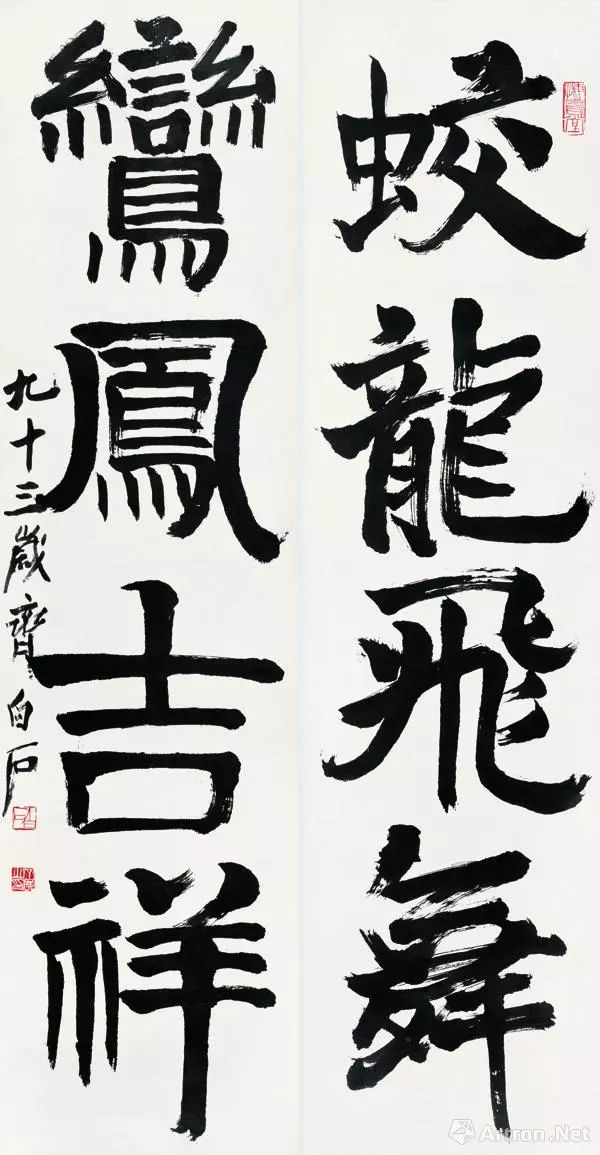 蛟龍飛舞
鸞鳳吉祥
九十三歲齊白石
Artron.Net